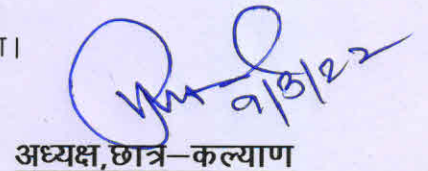 ा।
9/3/22
अध्यक्ष,छात्र–कल्याण